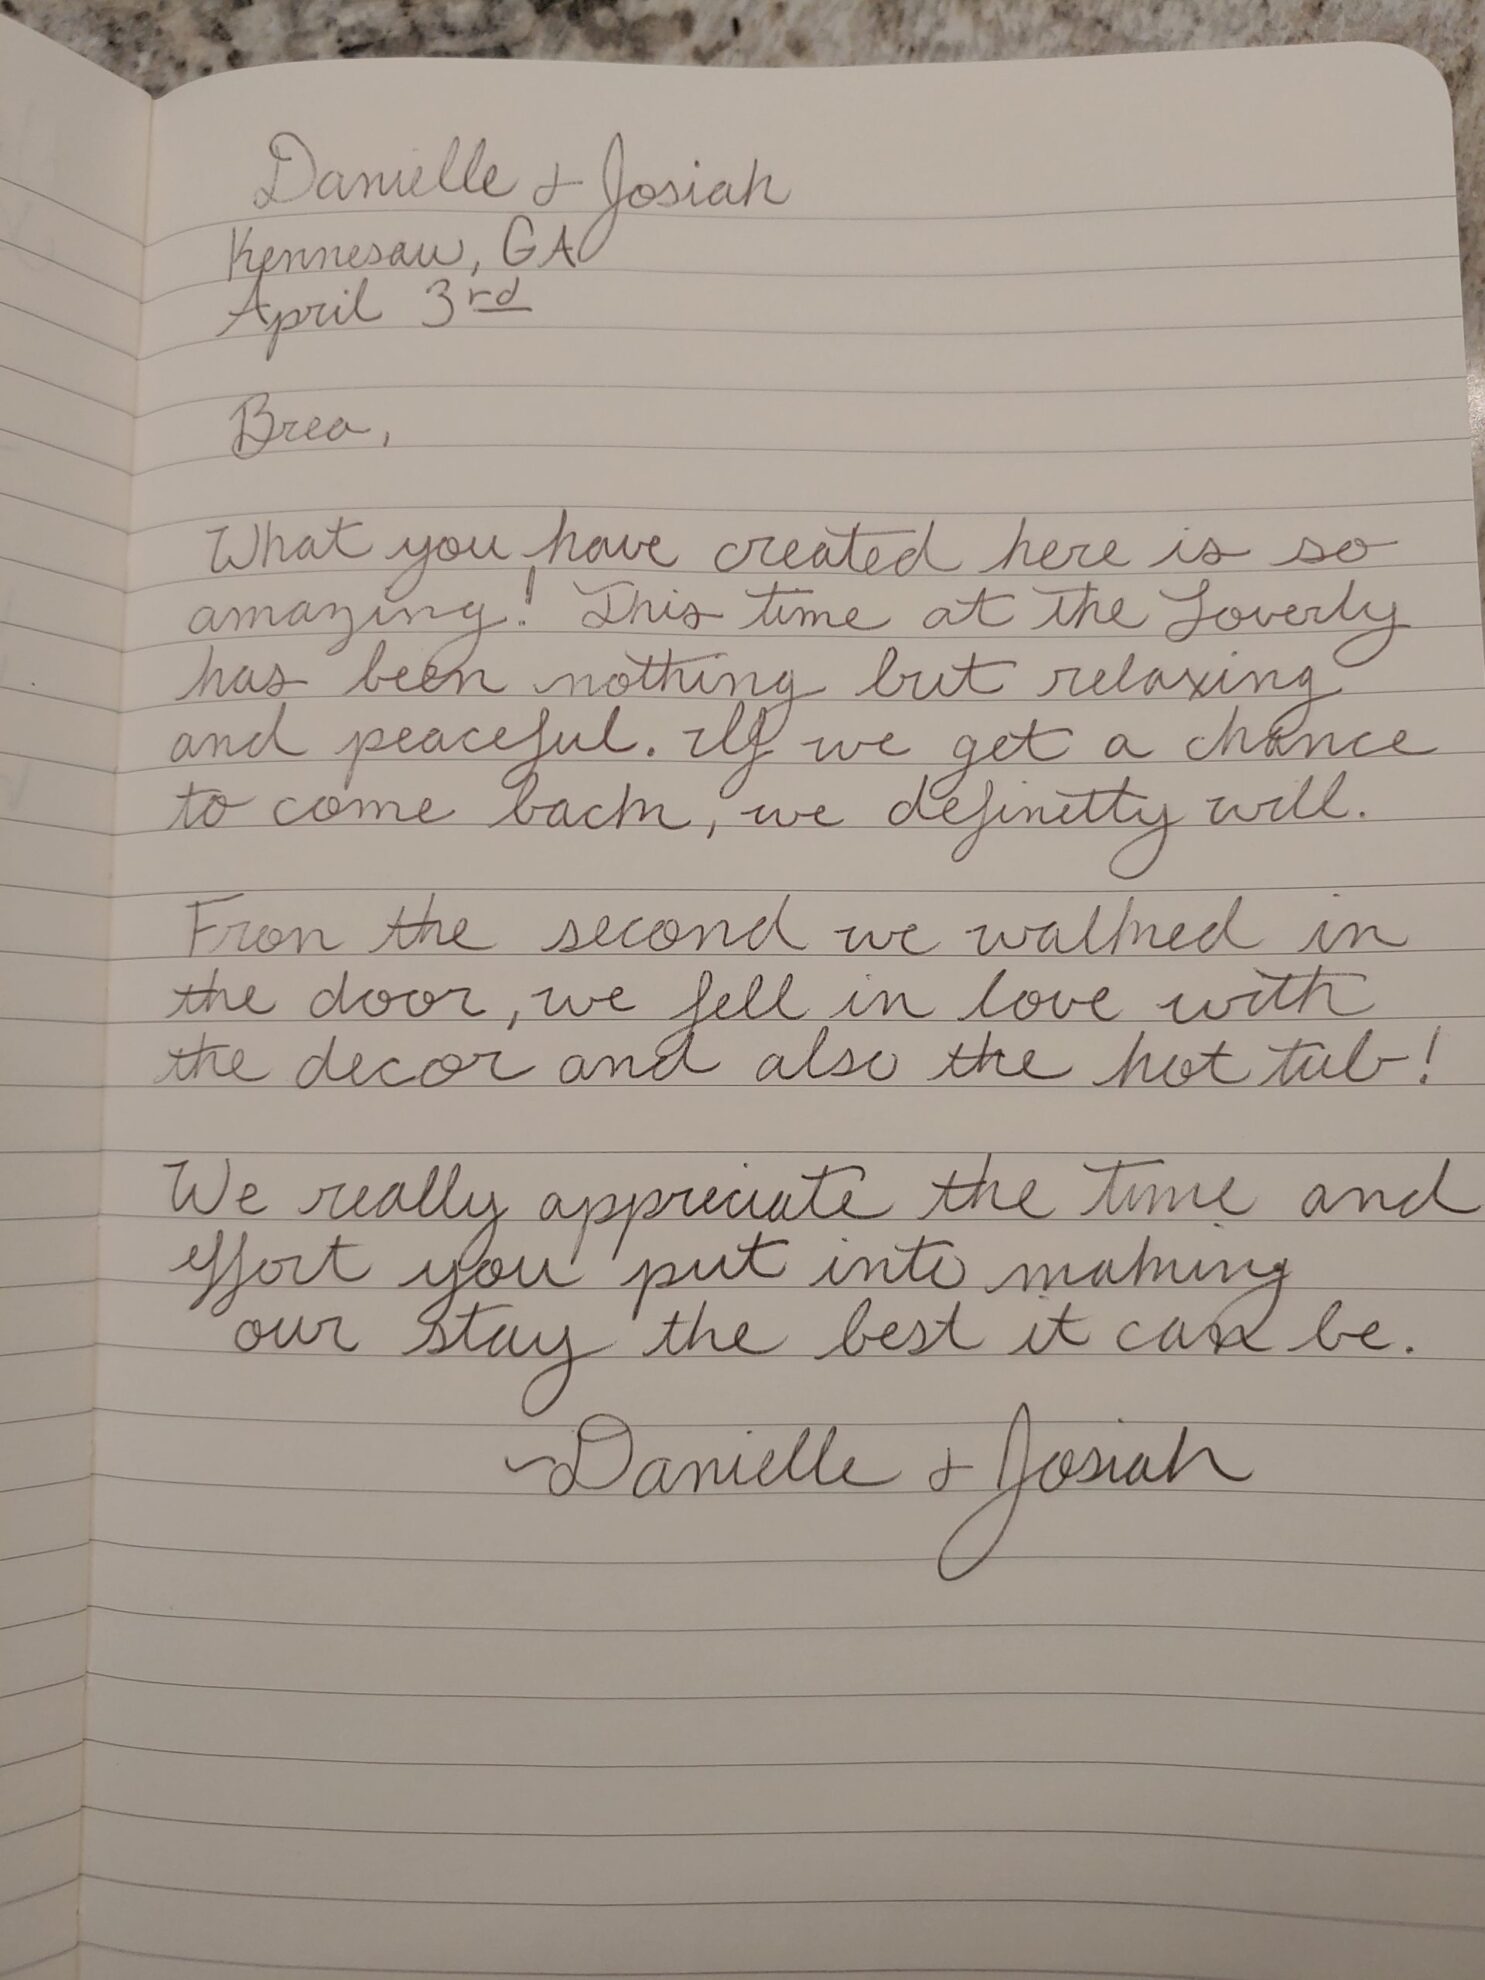 Danielle + Josiah
Kennesaw, GA
April 3rd
Brea,
What you have created here is so
amazing! This time at the Loverly
has been nothing but relaxing
and peaceful. If we get a chance
to come back, we definetly will.
From the second we walked in
the door, we fell in love with
the decor and also the hot tub!
We really appreciate the time and
effort you put into making
our stay the best it can be.
~Danielle + Josiah